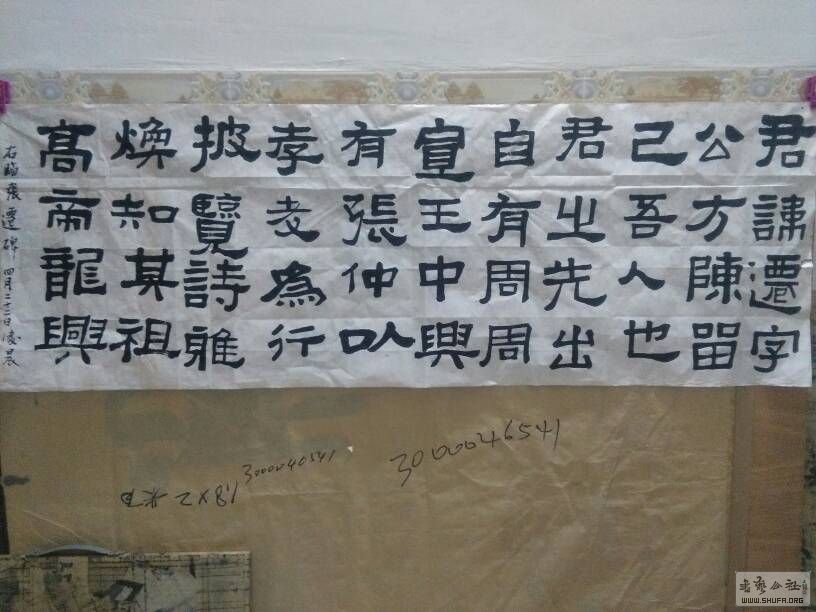 君諱遷字
公方陳留
己吾人也
君之先出
自有周周
宣王中興
有張仲以
孝友為行
披覽詩雅
煥知其祖
高帝龍興
右臨張遷碑 四月二十二日凌晨
3000046541
3000040541
1.8×2
書藝公社
WWW.SHUFA.ORG